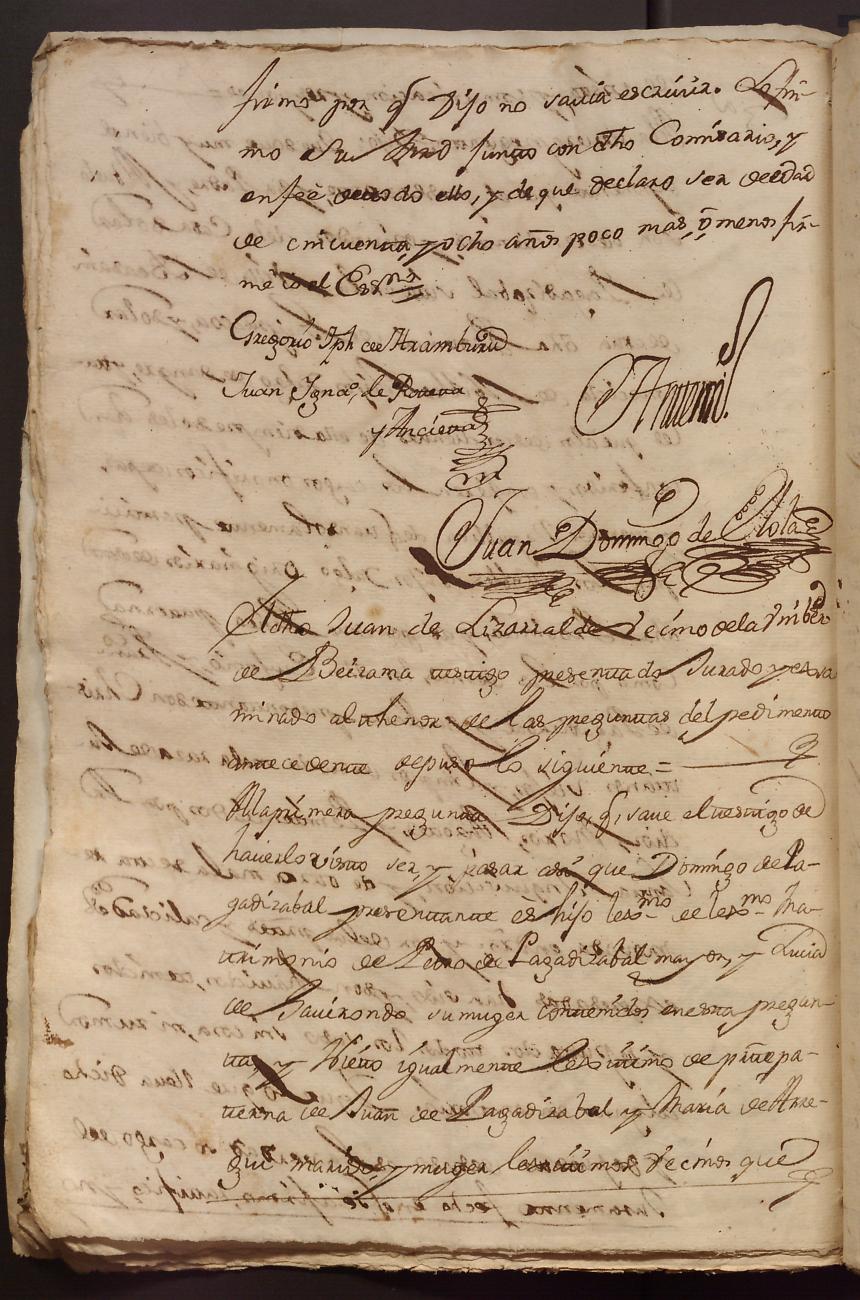 firmo por q̃ Dijo no savia escrivir. Lo fir-
mo Su Mrd junto con dho Comisario, y
en feè de todo ello, y de que declaro ser de edad
de cincuenta y ocho años poco mas, ò menos fir-
me io el Essno
Gregorio Jph de Aramburu
Juan Ignaº de
y Ancieta
Antemi
Juan Domingo de
El dho Juan de Lizarralde Vecino de la Vnibd
de Beizama testigo presentado Jurado y exsa
minado al thenor de las preguntas del pedimento
antecedente depuso lo siguiente =
A la primera pregunta Dijo, q̃, save el testigo de
haverlo visto ser, y pasar asi que Domingo de Pa-
gadizabal presentante ès hijo lexmo de lexmo Ma-
trimonio de Pedro de Pagadizabal mayor, y Lucia
de Sauirondo su muger contenidos en esta pregun-
ta, y Nieto igualmente lexitimo de pte pa-
terna de Juan de Pagadizabal y Maria de Arre-
gui marido, y muger lexitimos Vecinos que